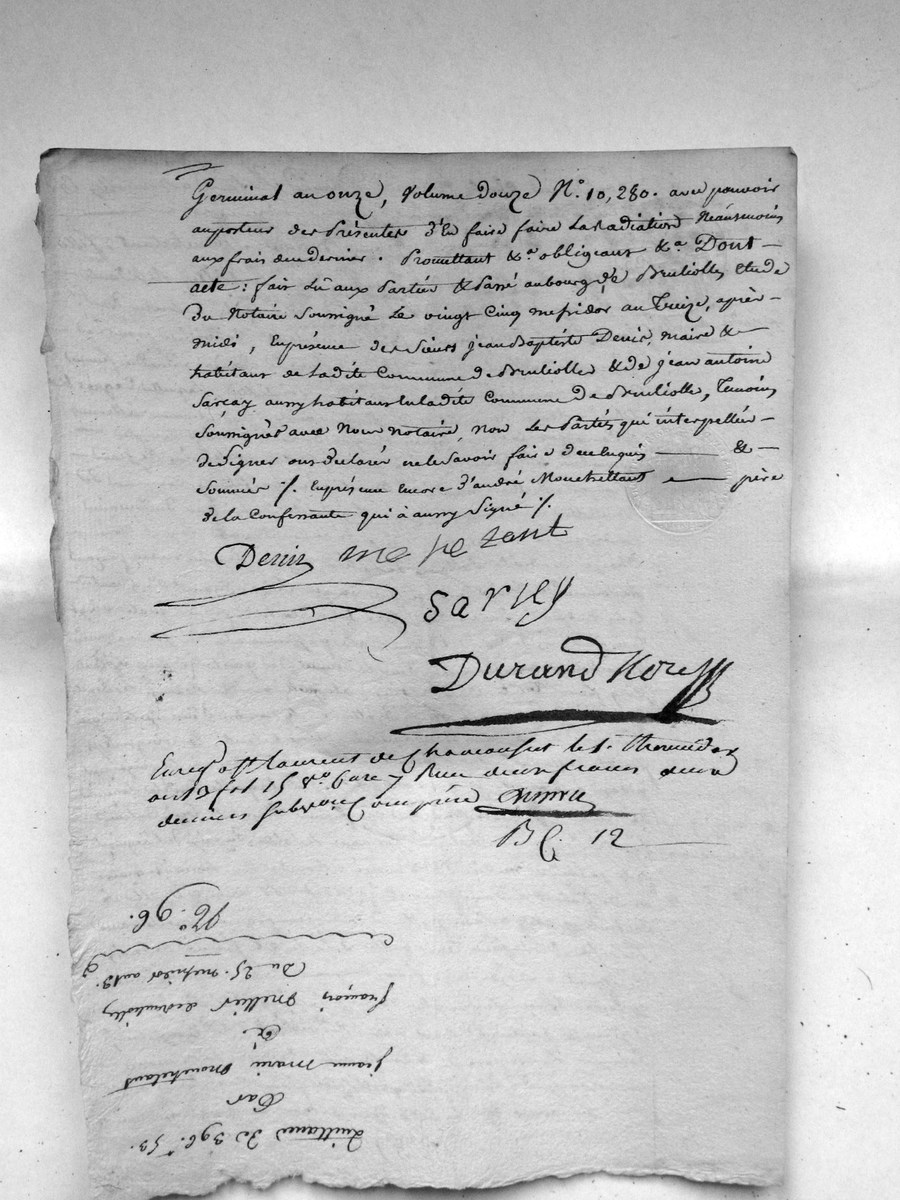 Germinal an onze, Volume douze N.° 10,280. avec pouvoir
au porteur des Présentes d'En faire faire La Radiation Néansmoins
aux frais de ce dernier. Promettant &a obligeant &a. Dont —
acte: fait Lû aux Parties & Passé au bourg de Bruliolles Etude
Du Notaire Soussigné Le vingt Cinq messidor an Treize, après-
midi, En présence des Sieurs jean Baptiste Denis, maire &
habitant de Ladite Commune de Brulliolle & de jean antoine
Sarcay aussy habitant en ladite Commune de Brulliolle, Temoins
Soussignés avec Nous Notaire, non Les Parties qui interpellées
de Signer ont déclaré ne le Savoir faire de ce Enquis — & —
Sommés ⁒. En présence Encore d'andré Mouchettant — père
de la Confessante qui à aussy Signé ⁒.
Denis
Sarsey
Durand Nore
Enreg. a St Laurent de Chamousset le 1.er Thermidor
an 13 fol 15 v.o Case 7 Reçu deux francs deux
decimes subvention comprise
B C. 12
N.° 96.
Du 25. messidor an 13.
françois Mellier de Brulliolles
&
jeanne marie Mouchetant
Par
Quittance de 396.# 53.